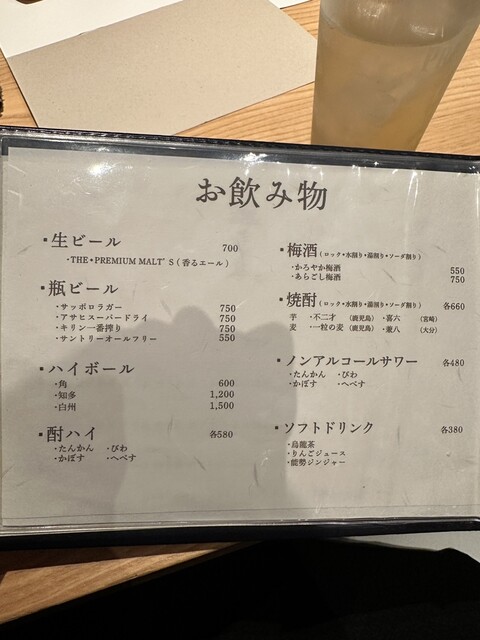 お飲み物
・生ビール 700
・THE・PREMIUM MALT'S(香るエール)
・瓶ビール
・サッポロラガー 750
・アサヒスーパードライ 750
・キリン一番搾り 750
・サントリーオールフリー 550
・ハイボール
・角 600
・知多 1,200
・白州 1,500
・酎ハイ 各580
・たんかん ・びわ
・かぼす ・へべす
・梅酒(ロック・水割り・湯割り・ソーダ割り)
・かろやか梅酒 550
・あらごし梅酒 750
・焼酎(ロック・水割り・湯割り・ソーダ割り) 各660
芋 ・不二才 (鹿児島) ・喜六 (宮崎)
麦 ・一粒の麦 (鹿児島) ・兼八 (大分)
・ノンアルコールサワー 各480
・たんかん ・びわ
・かぼす ・へべす
・ソフトドリンク 各380
・烏龍茶
・りんごジュース
・能勢ジンジャー